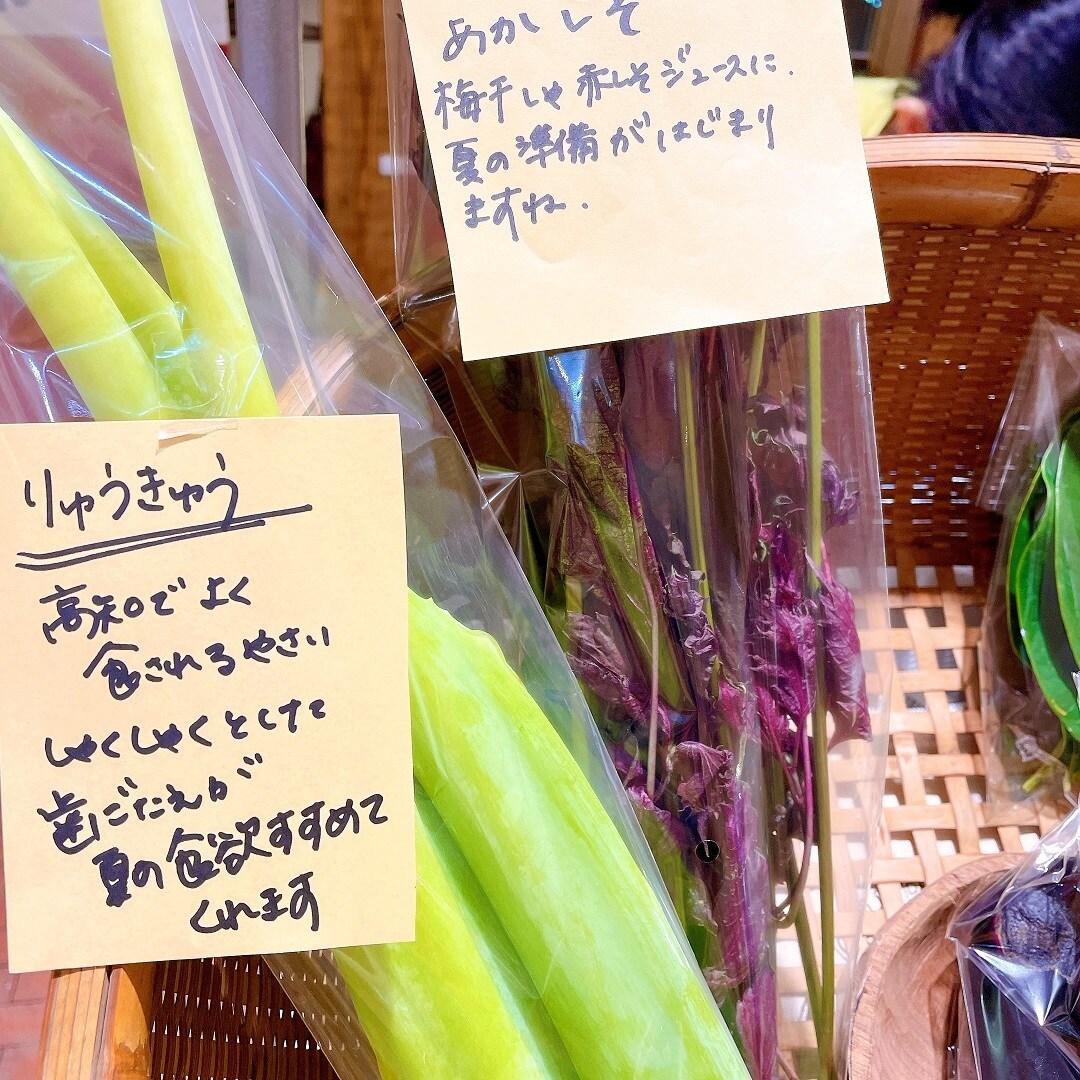 あかしそ
梅干しや赤しそジュースに.
夏の準備がはじまり
ますね.
りゅうきゅう
高知でよく
食されるやさい
しゃくしゃくとした
歯ごたえが
夏の食欲すすめて
くれます